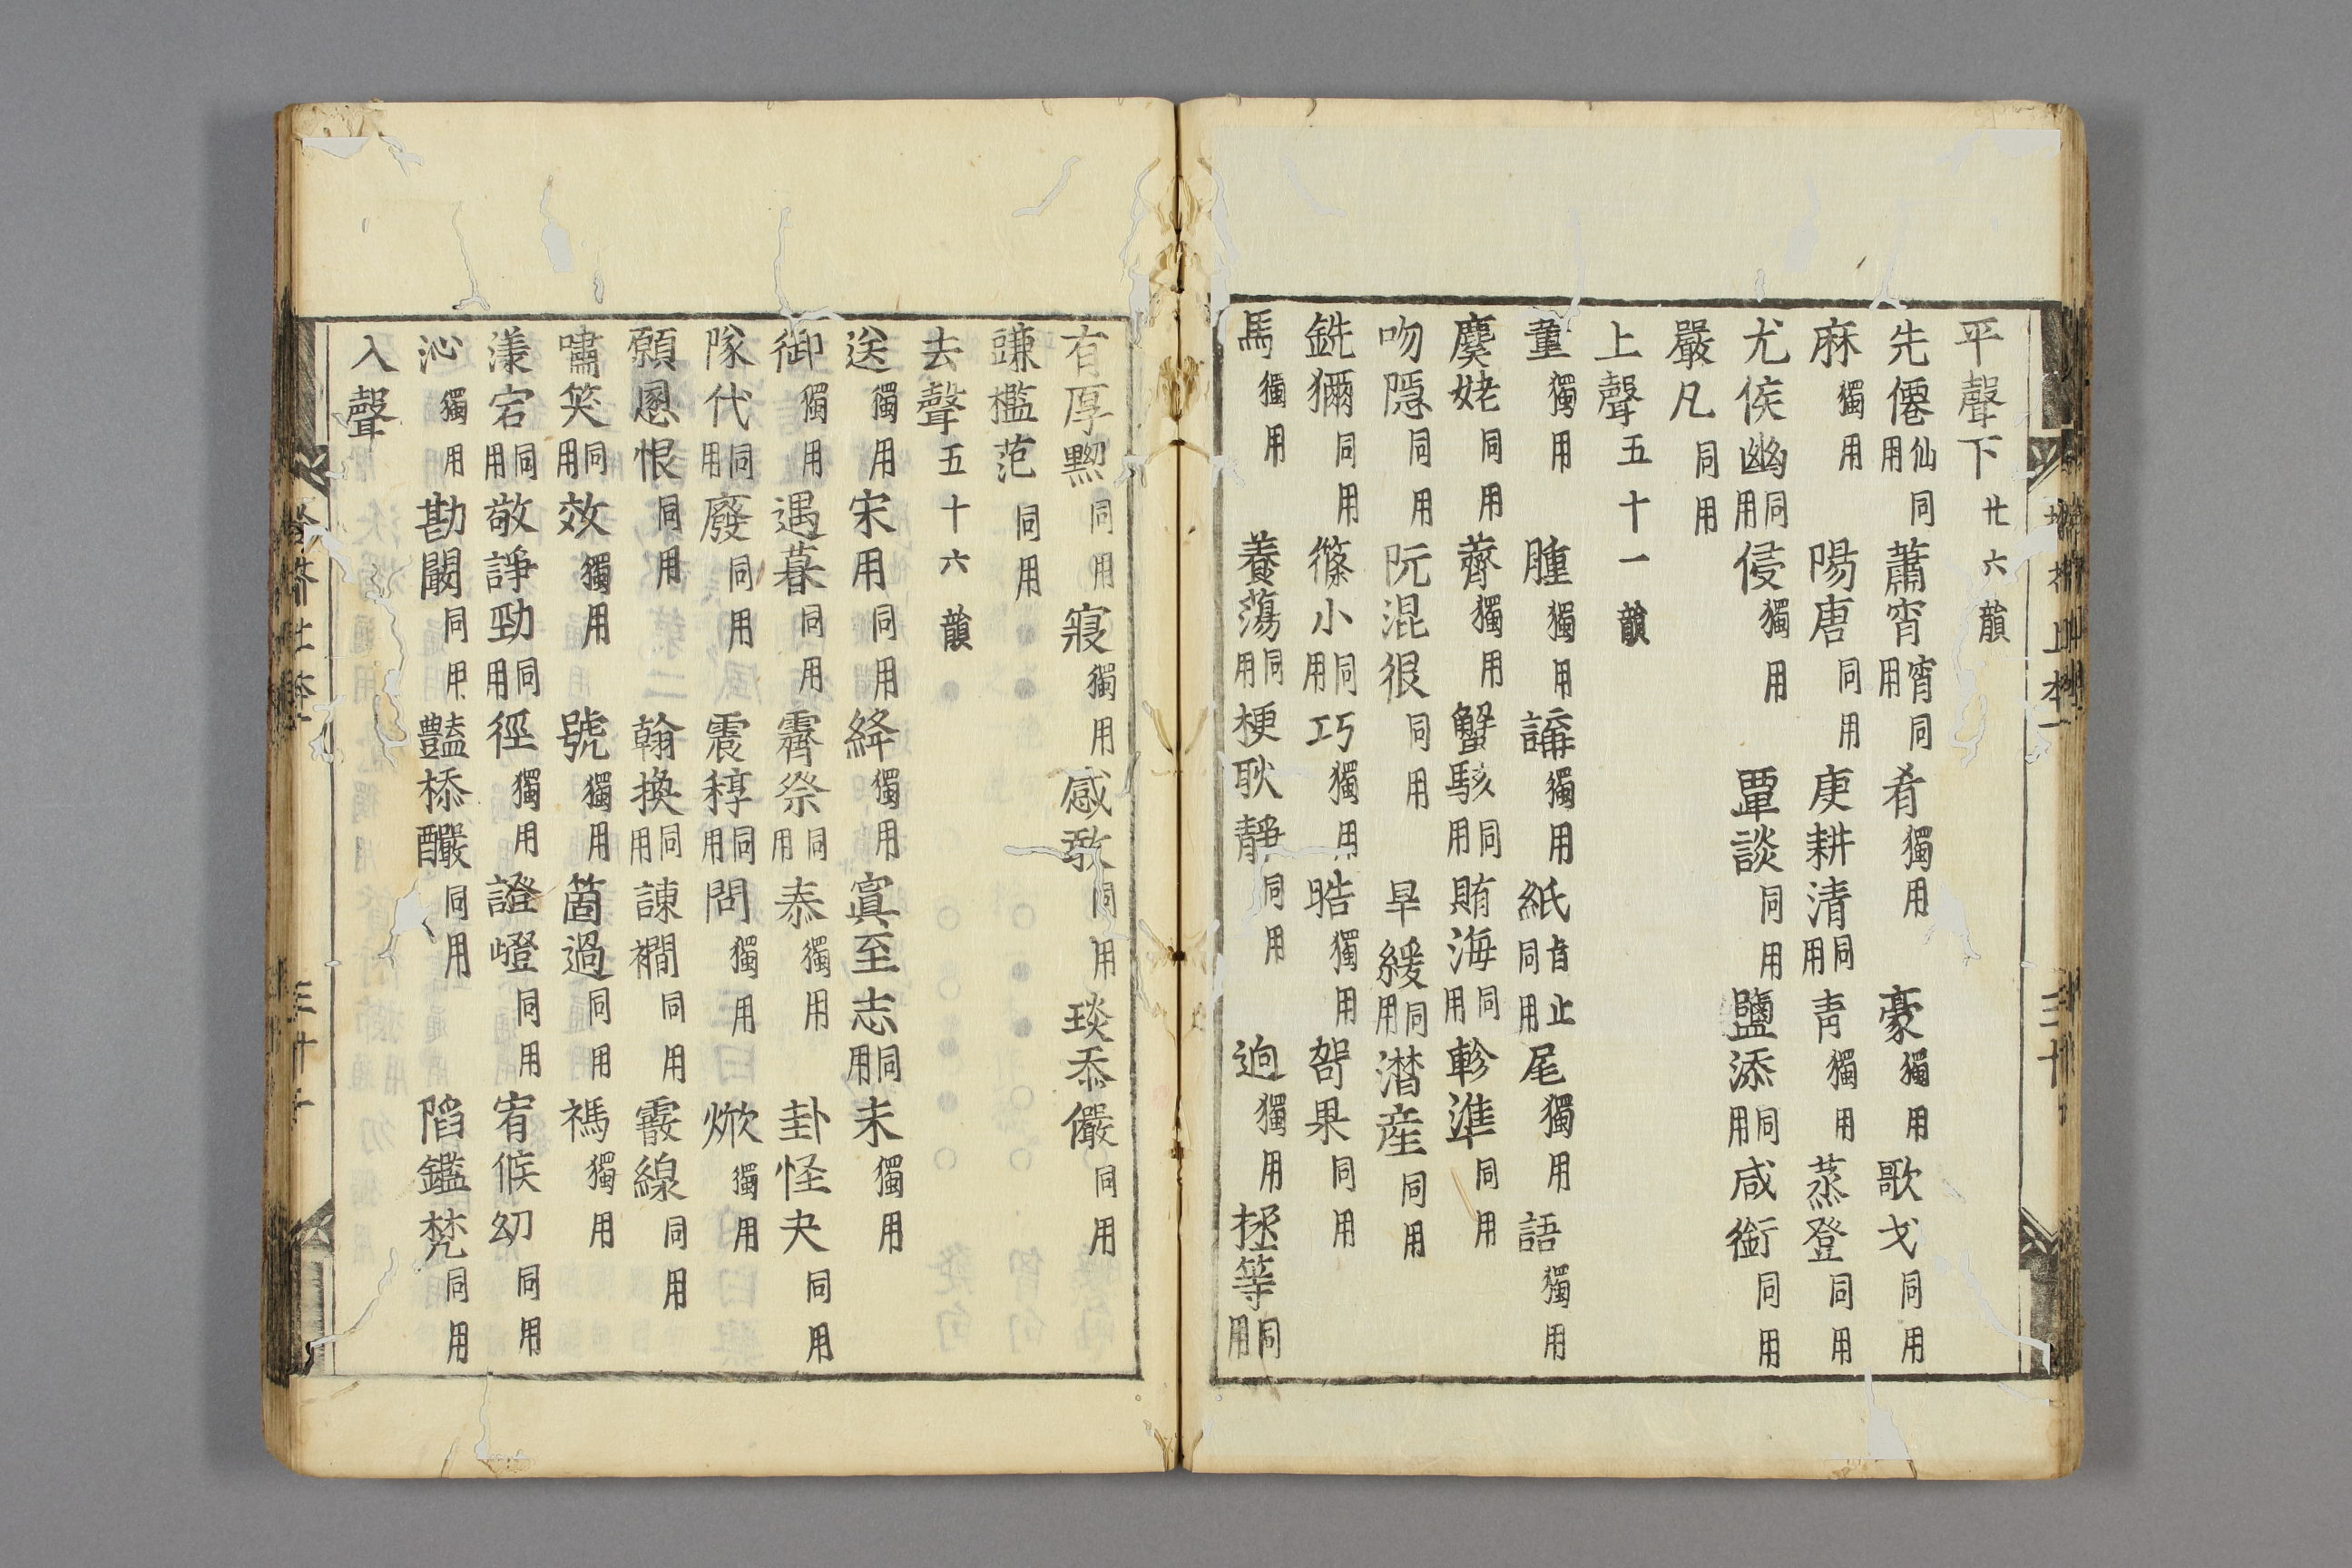 平聲下廿六韻
先僊仙同用蕭宵宵同用肴獨用豪獨用歌戈同用
麻獨用陽唐同用庚耕清同用青獨用蒸登同用
尤侯幽同用侵獨用覃談同用鹽添同用咸銜同用
嚴凡同用
上聲五十一韻
董獨用腫獨用講獨用紙旨止同用尾獨用語獨用
麌姥同用薺獨用蟹駭同用賄海同用軫準同用
吻隱同用阮混很同用旱緩同用潸産同用
銑獮同用篠小同用巧獨用晧獨用哿果同用
馬獨用養蕩同用梗耿靜同用迥獨用拯等同用
有厚黝同用寢獨用感敢同用琰忝儼同用
豏檻范同用
去聲五十六韻
送獨用宋用同用絳獨用寘至志同用未獨用
御獨用遇暮同用霽祭同用泰獨用卦怪夬同用
隊代同用廢同用震稕同用問獨用焮獨用
願慁恨同用翰換同用諫襉同用霰線同用
嘯笑同用效獨用號獨用箇過同用禡獨用
漾宕同用敬諍勁同用徑獨用證嶝同用宥候幼同用
沁獨用勘闞同用豔㮇釅同用陷鑑梵同用
入聲